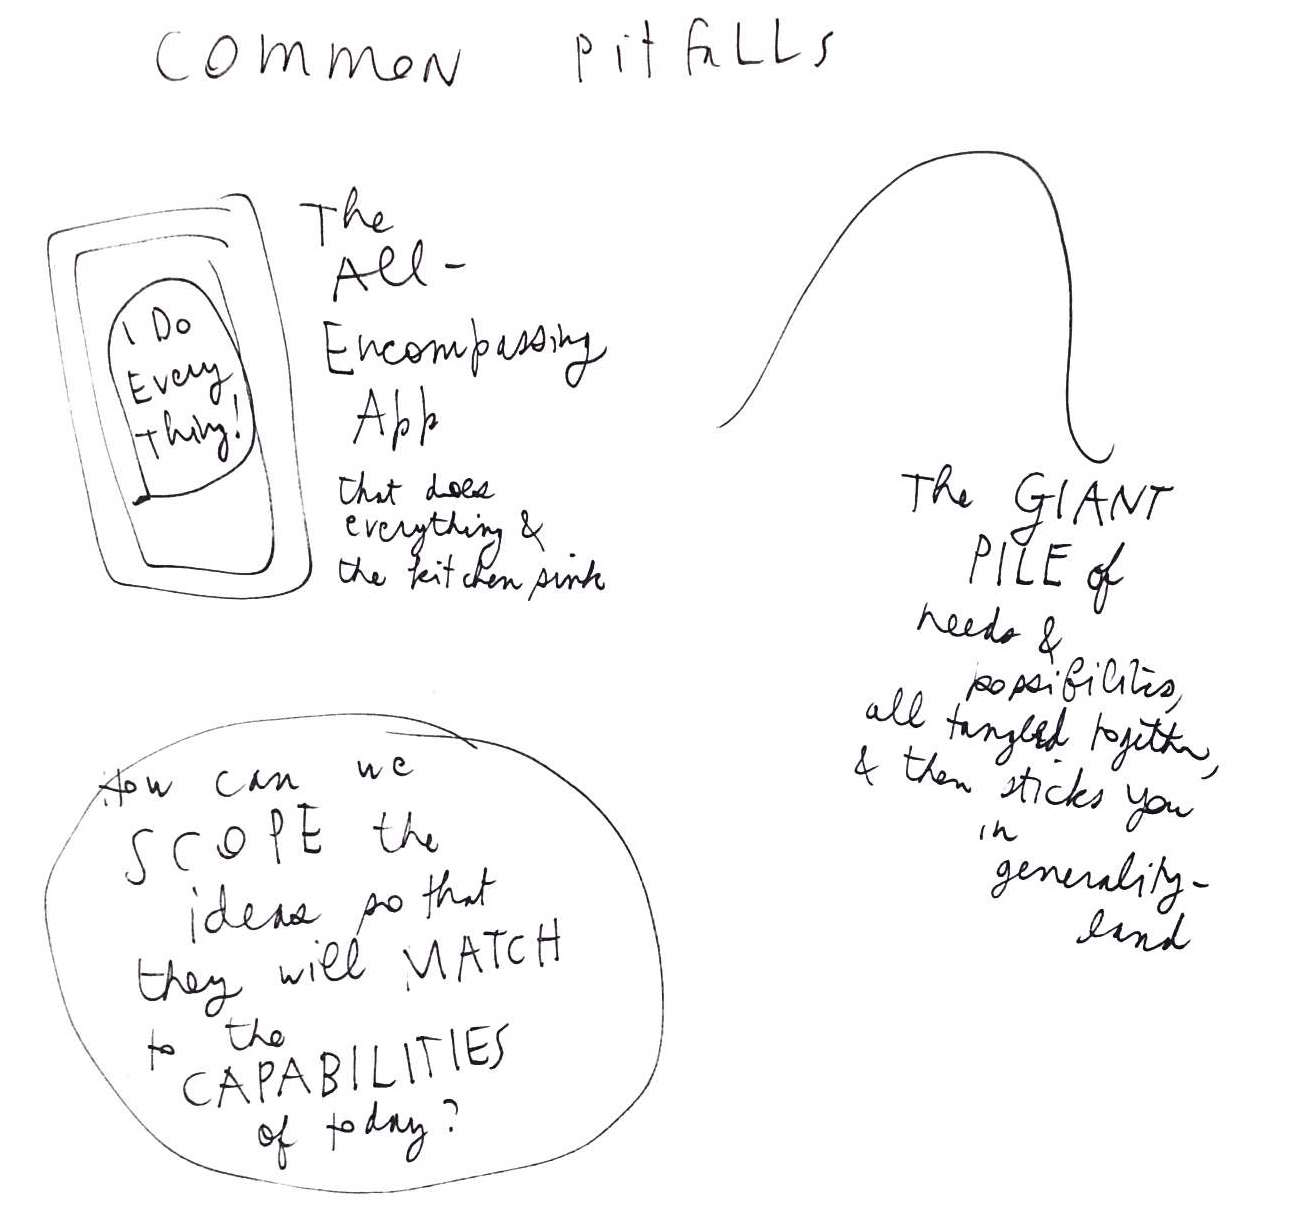 Common Pitfalls
I Do
Every
Thing!
The
All-
Encompassing
App
that does
everything &
the kitchen sink
The GIANT
PILE of
needs &
possibilities,
all tangled together,
& then sticks you
in
generality-
land
How can we
SCOPE the
ideas so that
they will MATCH
to the
CAPABILITIES
of today?